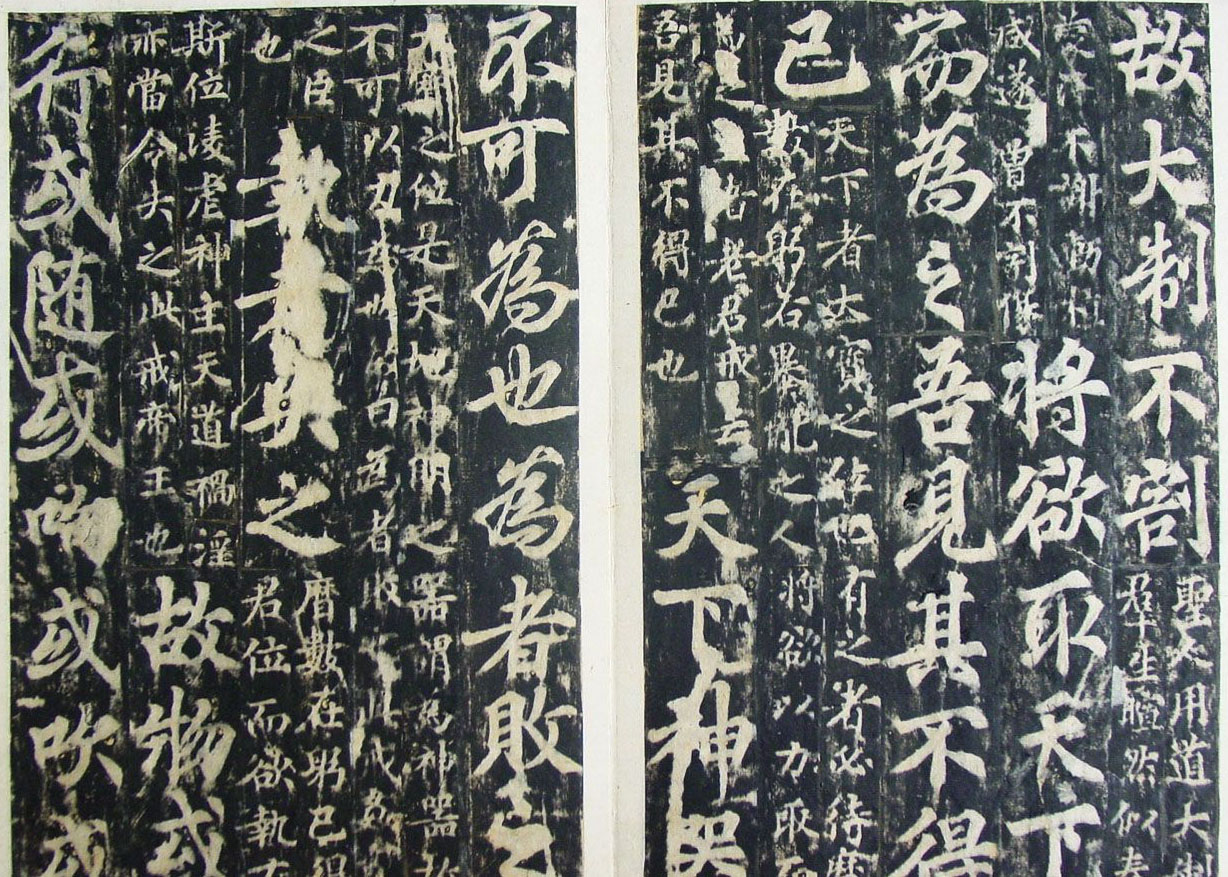 故大制不割
聖人用道大制
群生曈然似春
不謝
咸遂曾不割傷
將欲取天下
而為之吾見其不得
已
天下者大寶之位也有之者必待曆
數在躬若暴亂之人將欲以力取而
為之老君戒云
吾見其不得已也
天下神器
不可為也為者敗之
大寶之位是天地神明之器謂為神器故
不可以力為也故曰為者敗之此戒姦亂
之臣
也
執者失之
曆數在躬已得
君位而欲執有
斯位淩虐神主天道禍淫
亦當令失之此戒帝王也
故物或
行或随或呴或吹或